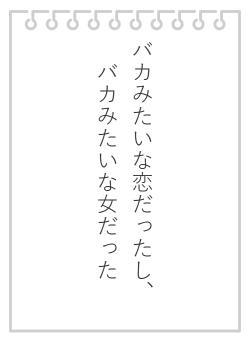 バカみたいな恋だったし、
バカみたいな女だった